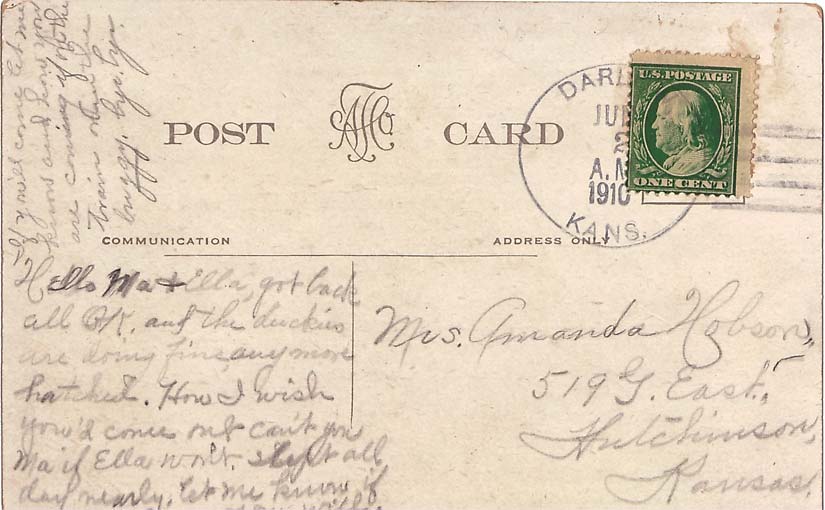 If y will come let me
know and how you
are coming if on the
train or in the
buggy, bye bye.
POST CARD
COMMUNICATION
ADDRESS ONLY
DARL
JUL
22
A.M
1910
KANS.
U.S. POSTAGE
ONE CENT
Hello Ma + Ella, got back
all O/K. and the duckies
are doing fine, any more
hatched. How I wish
you'd come out can't you
Ma if Ella won't. slept all
day nearly, let me know if
Mrs. Amanda Hobson,
519 G. East,
Hutchinson,
Kansas.